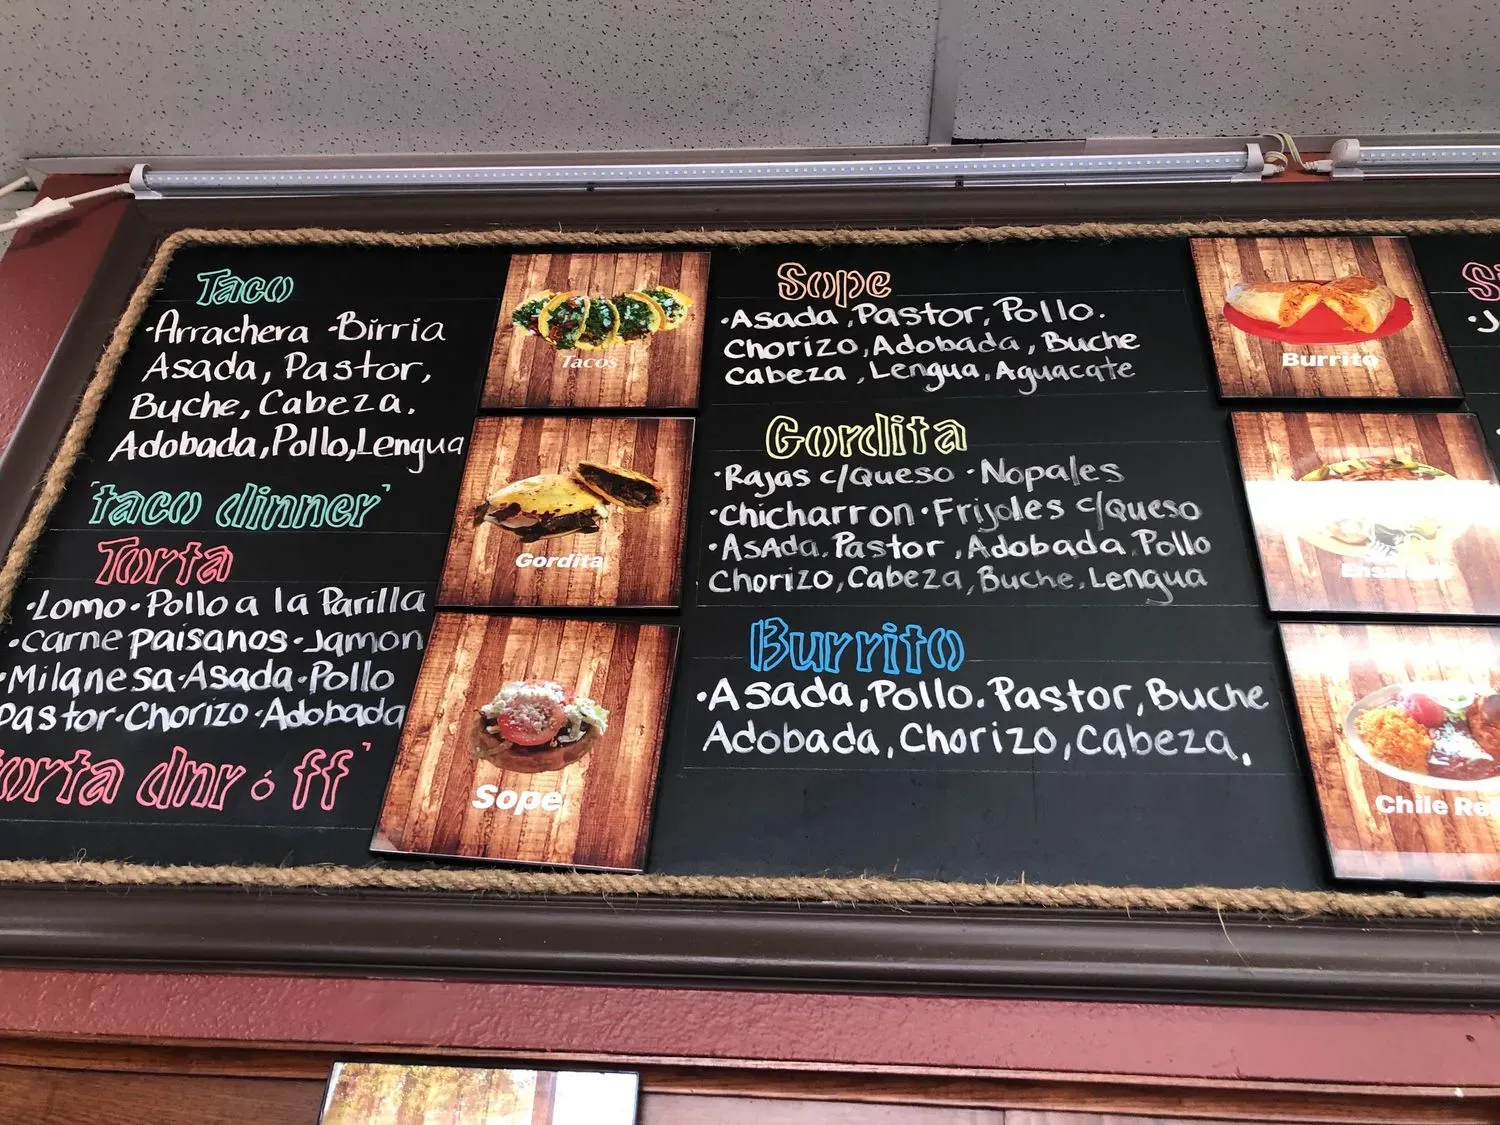 Taco
·Arrachera ·Birria
Asada, Pastor,
Buche, Cabeza.
Adobada, Pollo, Lengua
'taco dinner'
Torta
·Lomo·Pollo a la Parilla
·Carne paisanos·Jamon
·Milanesa·Asada·Pollo
Pastor·Chorizo·Adobada
torta dnr ó ff'
Tacos
Gordita
Sope
Sope
·Asada, Pastor, Pollo.
Chorizo, Adobada, Buche
Cabeza, Lengua, Aguacate
Gordita
·Rajas c/Queso ·Nopales
·Chicharron·Frijoles c/Queso
·AsAda. Pastor, Adobada Pollo
Chorizo, Cabeza, Buche, Lengua
Burrito
·Asada, Pollo. Pastor, Buche
Adobada, Chorizo, Cabeza,
Burrito
Chile